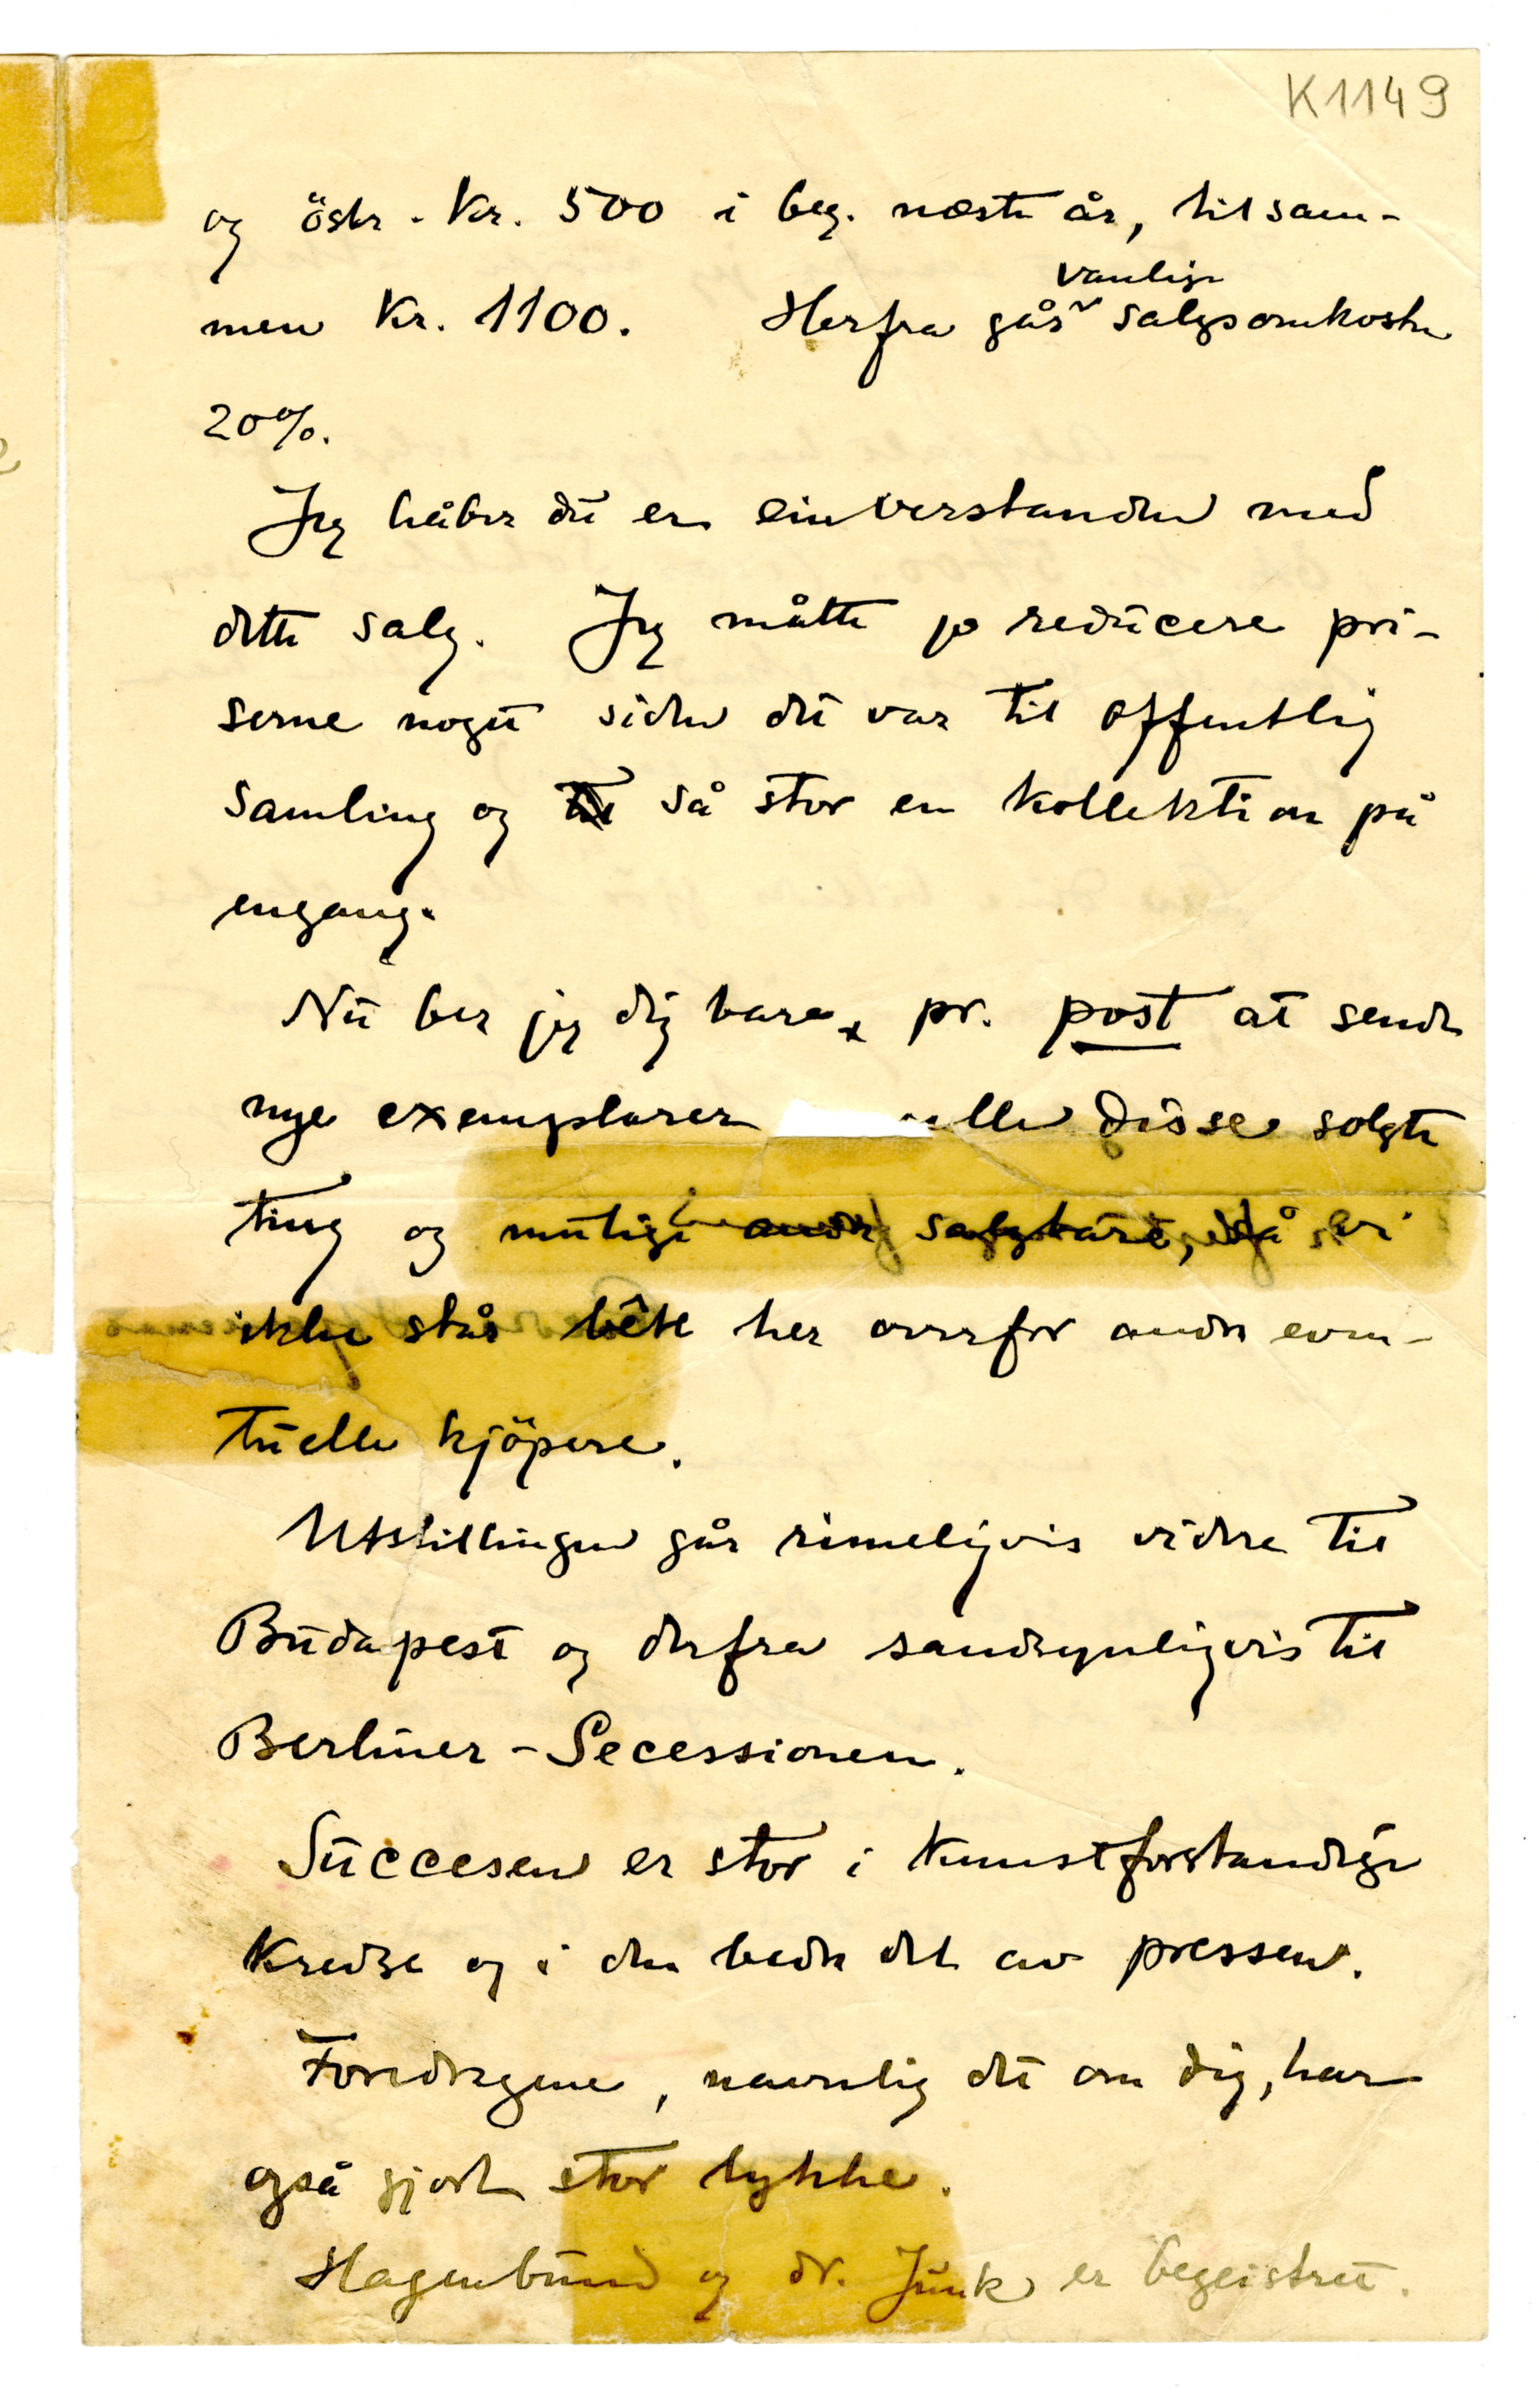 K1149
og östr. Kr. 500 i beg. næste år, tilsam-
men Kr. 1100. Herfra går vanlige salgsomkostn
20%.
Jeg håber du er einverstanden med
dette salg. Jeg måtte jo reducere pri-
serne noget siden det var til offentlig
samling og så stor en kollektion på
engang.
Nu ber jeg dig bare, pr. post at sende
nye exemplarer alle disse solgte
ting og mulige andre salgbare, så vi
ikke står bête her overfor andre even-
tuelle kjöpere.
Utstillingen går rimeligvis videre til
Budapest og derfra sandsynligvis til
Berliner-Secessionen.
Succesen er stor i kunstforstandige
Kredse og i den bedre del av pressen.
Foredragene, navnlig det om dig, har
også gjort stor lykke.
Hagenbund og dr. Junk er begeistret.